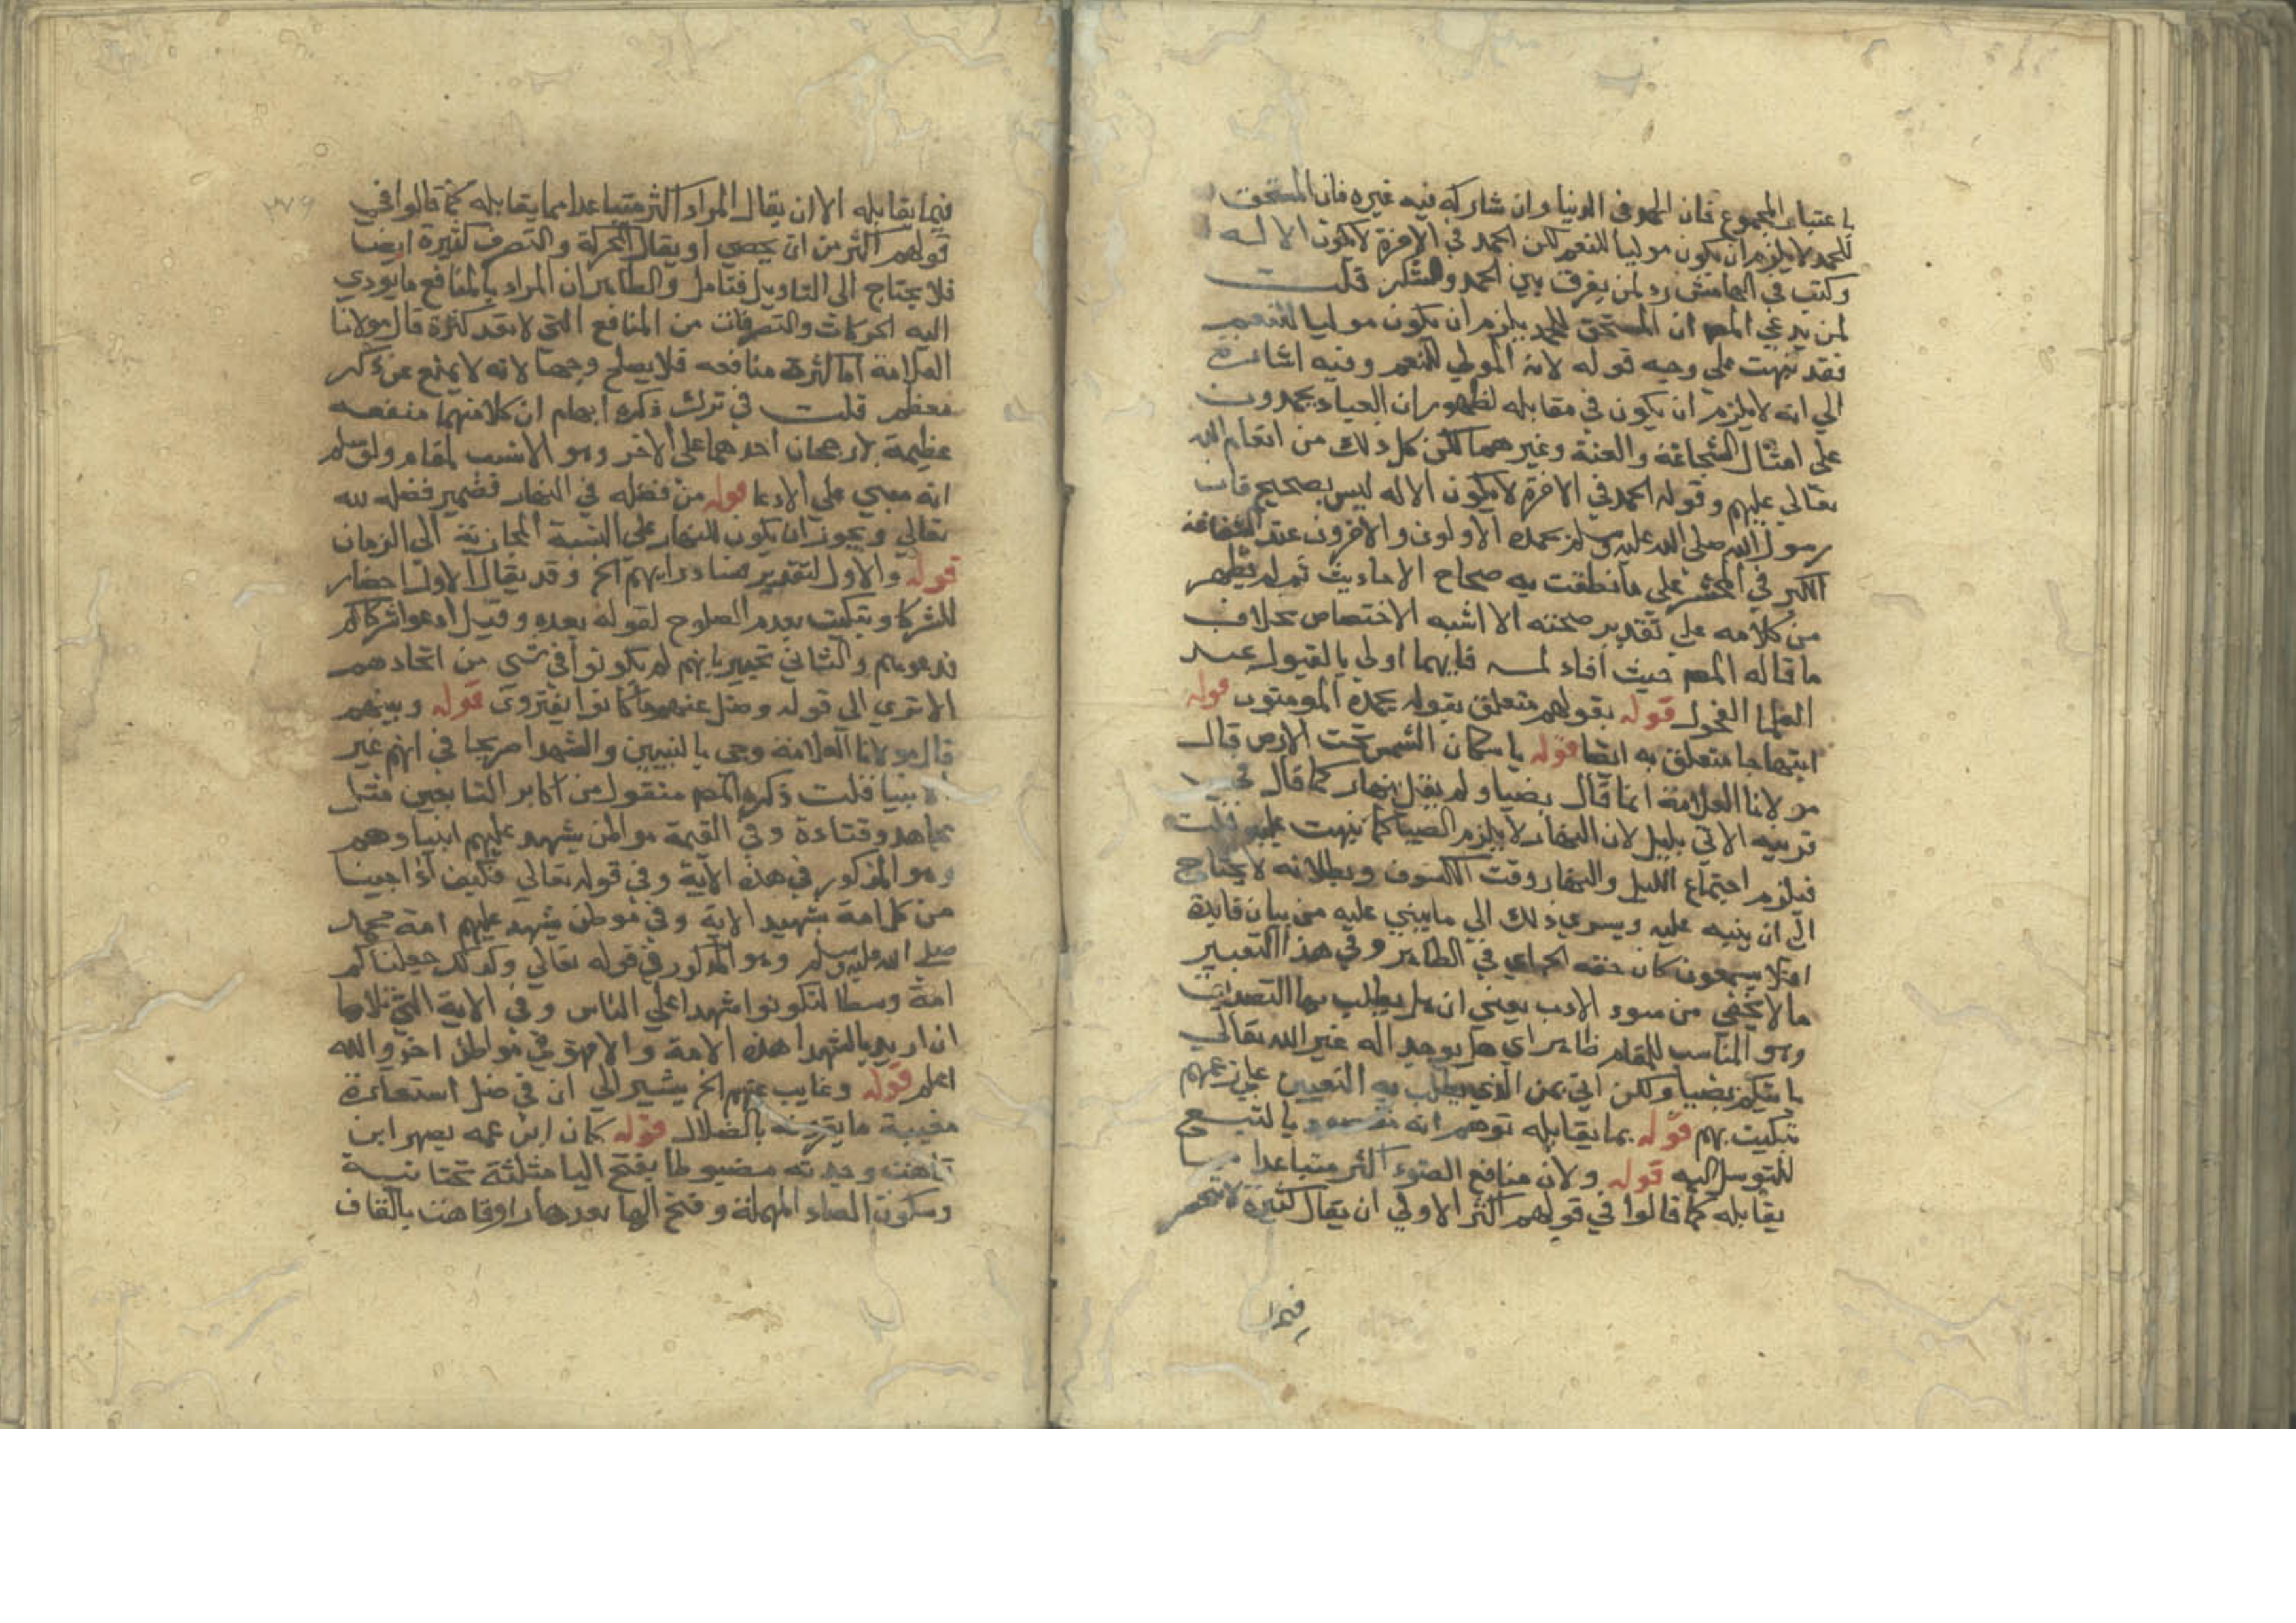 باعتبار المجموع فان الحمد في الدنيا وان شاركه فيه غيره فان المستحق
للحمد لا يلزم ان يكون موليا للنعم لكن الحمد في الاخرة لا يكون الا له
وكتب في الهامش رد لمن يفرق بين الحمد والشكر قلت
لمن يدعي المص ان المستحق للحمد يلزم ان يكون موليا للنعم
فقد نبهت علي وجه قوله لانه المولي للنعم وفيه اشارة
الي انه لا يلزم ان يكون في مقابله لظهور ان العباد يحمدون
علي امثال الشجاعة والعفة وغيرهما لكن كل ذلك من انعام الله
تعالي عليهم وقوله الحمد في الاخرة لا يكون الا له ليس بصحيح فان
رسول الله صلي الله عليه وسلم يحمده الاولون والاخرون عند الشفاعة
الكبر في المحشر علي ما نطقت به صحاح الاحاديث ثم لم يظهر
من كلامه علي تقدير صحته الا اشبه الاختصاص بخلاف
ما قاله المص حيث افاد لمه فايهما اولي بالقبول عند
العلما الفحول قوله بقولهم متعلق بقوله يحمده المومنون قوله
ابتهاجا متعلق به ايضا قوله باسكان الشمس تحت الارض قال
مولانا العلامة انما قال بضيا ولم يقل بنهار كما قال في
قرينه الاتي بليل لان النهار لا يلزم الضيا كما نبهت عليه قلت
فيلزم اجتماع الليل والنهار وقت الكسوف وبطلانه لا يحتاج
الي ان ينبه عليه ويسري ذلك الي ما يبني عليه من بيان فايدة
افلا يسمعون كان حقه الخ اي في الظاهر وفي هذا التعبير
ما لا يخفي من سوء الادب يعني ان هل يطلب بها التصديق
وهو المناسب للمقام ظاهر اي هل يوجد اله غير الله تعالي
ياتيكم بضيا ولكن اتي بمن الذي يطلب به التعيين علي زعمهم
تبكيت بهم قوله بما يقابله توهم انه بالتبع
للتوسل اليه قوله ولان منافع الضوء اكثر متباعدا مما
يقابله كما قالوا في قولهم اكثر الاولي ان يقال كثيرة لا تنحصر
فيما
٣٧٩
فيما يقابله الا ان يقال المراد اكثر متباعدا مما يقابله كما قالوا في
قولهم اكثر من ان يحصي او يقال الحركة والتصرف كثيرة ايضا
فلا يحتاج الي التاويل فتامل والظاهر ان المراد بالمنافع ما يودي
اليه الحركات والتصرفات من المنافع التي لا تعد كثرة قال مولانا
العلامة اما كثرة منافعه فلا يصلح وجها لانه لا يمنع عن ذكر
معظم قلت في ترك ذكره ايهام ان كلا منهما منفعه
عظيمة لا رجحان احدهما علي الاخر وهو الانسب لمقام ولو سلم
انه مبني علي الادعا قوله من فضله في النهار فضمير فضله لله
تعالي ويجوز ان يكون للنهار علي النسبة المجازية الي الزمان
قوله والاول لتقدير فساد رايهم الخ وقد يقال الاول احضار
للشركا وتبكيت بعدم الصلوح لقوله بعده وقيل ادعوا شركاكم
فدعوهم والثاني تحيير بانهم لم يكونوا في شي من اتحادهم
الا تري الي قوله وضل عنهم ما كانوا يفترون قوله وبينهم
قال مولانا العلامة وجي بالنبيين والشهدا صريحا في انهم غير
الانبيا قلت ذكره المص منقول من اكابر التابعين مثل
مجاهد وقتادة وفي القيمة مواطن يشهد عليهم انبياوهم
وهو المذكور في هذه الآية وفي قوله تعالي فكيف اذا جينا
من كل امة بشهيد الاية وفي موطن يشهد عليهم امة محمد
صلي الله عليه وسلم وهو المذكور في قوله تعالي وكذلك جعلناكم
امة وسطا لتكونوا شهدا علي الناس وفي الاية التي تلاها
ان اريد بالشهدا هذه الامة والامر في مواطن اخر والله
اعلم قوله وغاب عنهم الخ يشير الي ان في ضل استعارة
مغيبة ما يقرنه بالضلال قوله كان ابن عمه يصهر ابن
قاهث وجدته مضبوطا بفتح اليا مثلثة تحتانية
وسكون الصاد المهملة وفتح الها بعدها را وقاهث بالقاف